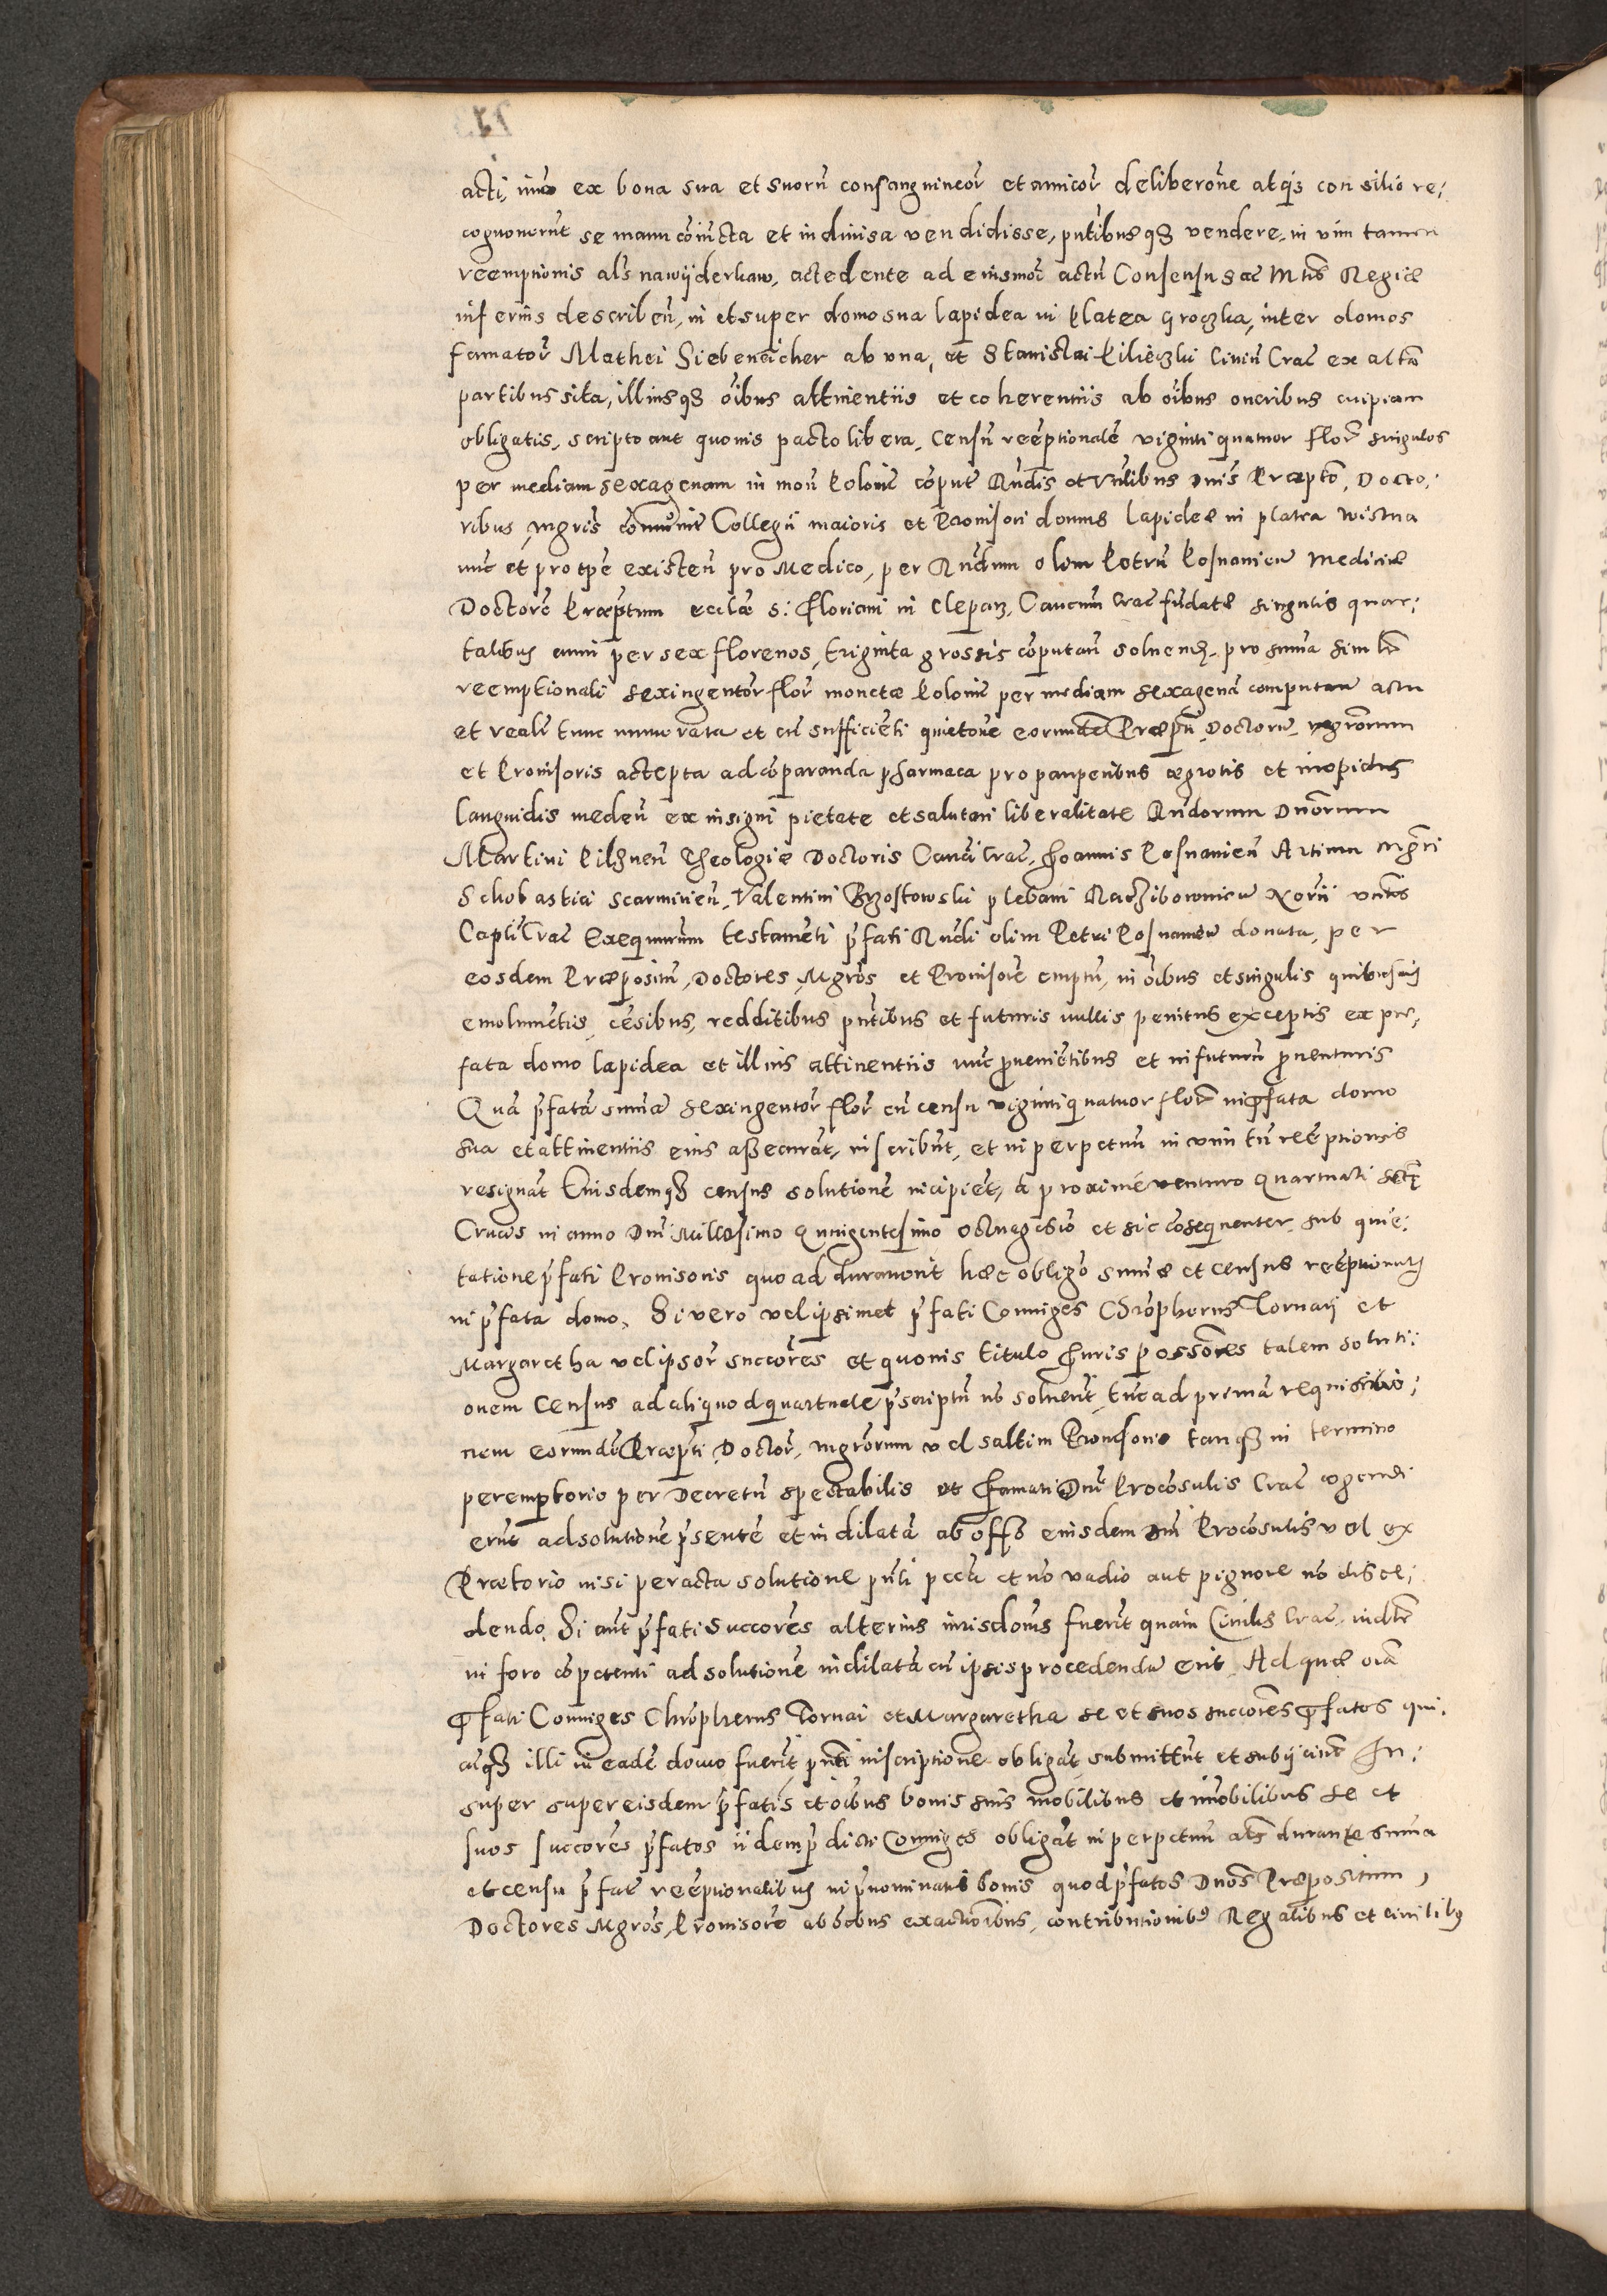 acti, imo ex bona sua et suorū consanguineor̄ et amicor̄ deliberōne atq̨ȝ consilio re;
cognouerūt se manu cōiūcta et indiuisa vendidisse, pn̄tibusqȝ vendere, in vim tamen
reemptionis al̄s nawijderkaw, accedente ad eiusmōi actū Consensu Sac̄ Mtis Regiæ
inferius describeñ, in et super domo sua lapidea in platea Groczka, inter domos
famator̄ Mathei Siebeneicher ab vna, et Stanislai Pilieczki Ciuiū Crac̄ ex altā
partibus sita, illiusqȝ ōibus attinentiis et coherentiis ab ōibus oneribus cuipiam
obligatis, scripto aut quouis pacto libera, Censū reēptionalē viginti quatuor flor̄ singulos
per mediam sexagenam in mon̄ Polonic̄ cōputn̄ Rn̄dis et Vnlibus Dnis Præpto, Docto;
ribus, mgris Collegii maioris et Prouisori domus lapideæ in platea Wislna
nūc et pro tpē existen̄ pro Medico, per Rn̄dum olim Petrū Posnanien̄ Mediciæ
Doctorē Præptum eccłæ S: Floriani in Cleparz, Canonū Crac̄ fūdatæ singulis quar;
talibus anni per sex florenos, triginta grossis cōputan̄ soluend̄, pro suma simłr
reemptionali sexingentor̄ flor̄ monetæ Polonic̄ per mediam sexagenā computan̄ actu
et realr̄ tunc numerata et cū sufficiēti quietōne eorundē Præptī, Doctorū, mgrorum
et Prouisoris accepta ad cōparanda pharmaca pro pauperibus ægrotis et inopiaqȝ
languidis meden̄ ex insigni pietate et salutari liberalitate Rn̄dorum Dnorum
Martini Pilznen̄ Theologiæ Doctoris Canci Crac̄, Joannis Posnanien̄ Artium Mgri
Schobastici Scarmirien̄, Valentini Brzostowski plebani Racziborouicen̄
Captī Crac̄ Exequutorum testamēti p̄fati Rn̄di olim Petri Posnanien̄ donata, per
eosdem Præpositū, Doctores, Mgros et Prouisorē emptū, in ōibus et singulis quibusuis
emolumētis, cēsibus, redditibus pn̄tibus et futuris nullis penitus exceptis ex pre;
fata domo lapidea et illius attinentiis nūc prouenietibus et in futurū prouenturis
Quā p̄fatā sumā sexingentor̄ flor̄ cū censu viginti quatuor flor̄ in p̄fata domo
sua et attinentiis eius assecurāt, inscribūt, et in perpetuū in vim tn̄ reēptionis
resignāt Eiusdemqȝ census solutionē incipiēt, a proximē venturo Quartuali sctę
Crucis in anno Dni Millesimo Quingentesimo octuagesio et sic cōsequenter sub quie;
tatione p̄fati Prouisoris quoad durauerit hæc obligō sumæ et census reēptionalis
in p̄fata domo. Si vero vel ipsimet p̄fati Coniuges Chrōphorus Tornaij et
Margaretha vel ipsor̄ succōres et quouis titulo Juris possōres talem soluti;
onem Census ad aliquod quartuale p̄scriptū nō soluerīt, tūc ad primā requisitio;
nem eorundē Præpti, Doctor̄, mgrorum vel saltim Prouisoris tanqȝ in termino
peremptorio per Decretū spectabilis et Famati Dni Procōsulis Crac̄ cogendi
erūt ad solutionē p̄sentē et indilatā ab offō eiusdem Dni Procōsulis vel ex
Prætorio nisi peracta solutione pn̄ti pecū et nō vadio aut pignore nō disce;
dendo. Si aut p̄fati Succorēs alterius iurisdōnis fuerīt quam Ciuilis Crac̄
in foro cōpetenti ad solutionē indilatā cū ipsis procedendū erit. Ad quæ oīa
p̄fati Coniuges Chrōphorus Tornai et Margaretha se et suos succores p̄fatos qui;
cūqȝ illi in eadē domo fuerīt, pn̄ti inscriptione obligāt, submittūt et subijciūt In;
super super eisdem p̄fatis et ōibus bonis suis mobilibus et imobilibus se et
suos succorēs p̄fatos iidem p̄dicti Coniuges obligāt in perpetuū al̄s durante suma
et censu p̄fat̄ reēptionalibus in p̄nominatis bonis quod p̄fatos Dnos Præpositum,
Doctores Mgros, Prouisorē ab ōibus exactionibus, contributionibꝰ Regalibus et ciuilibꝰ